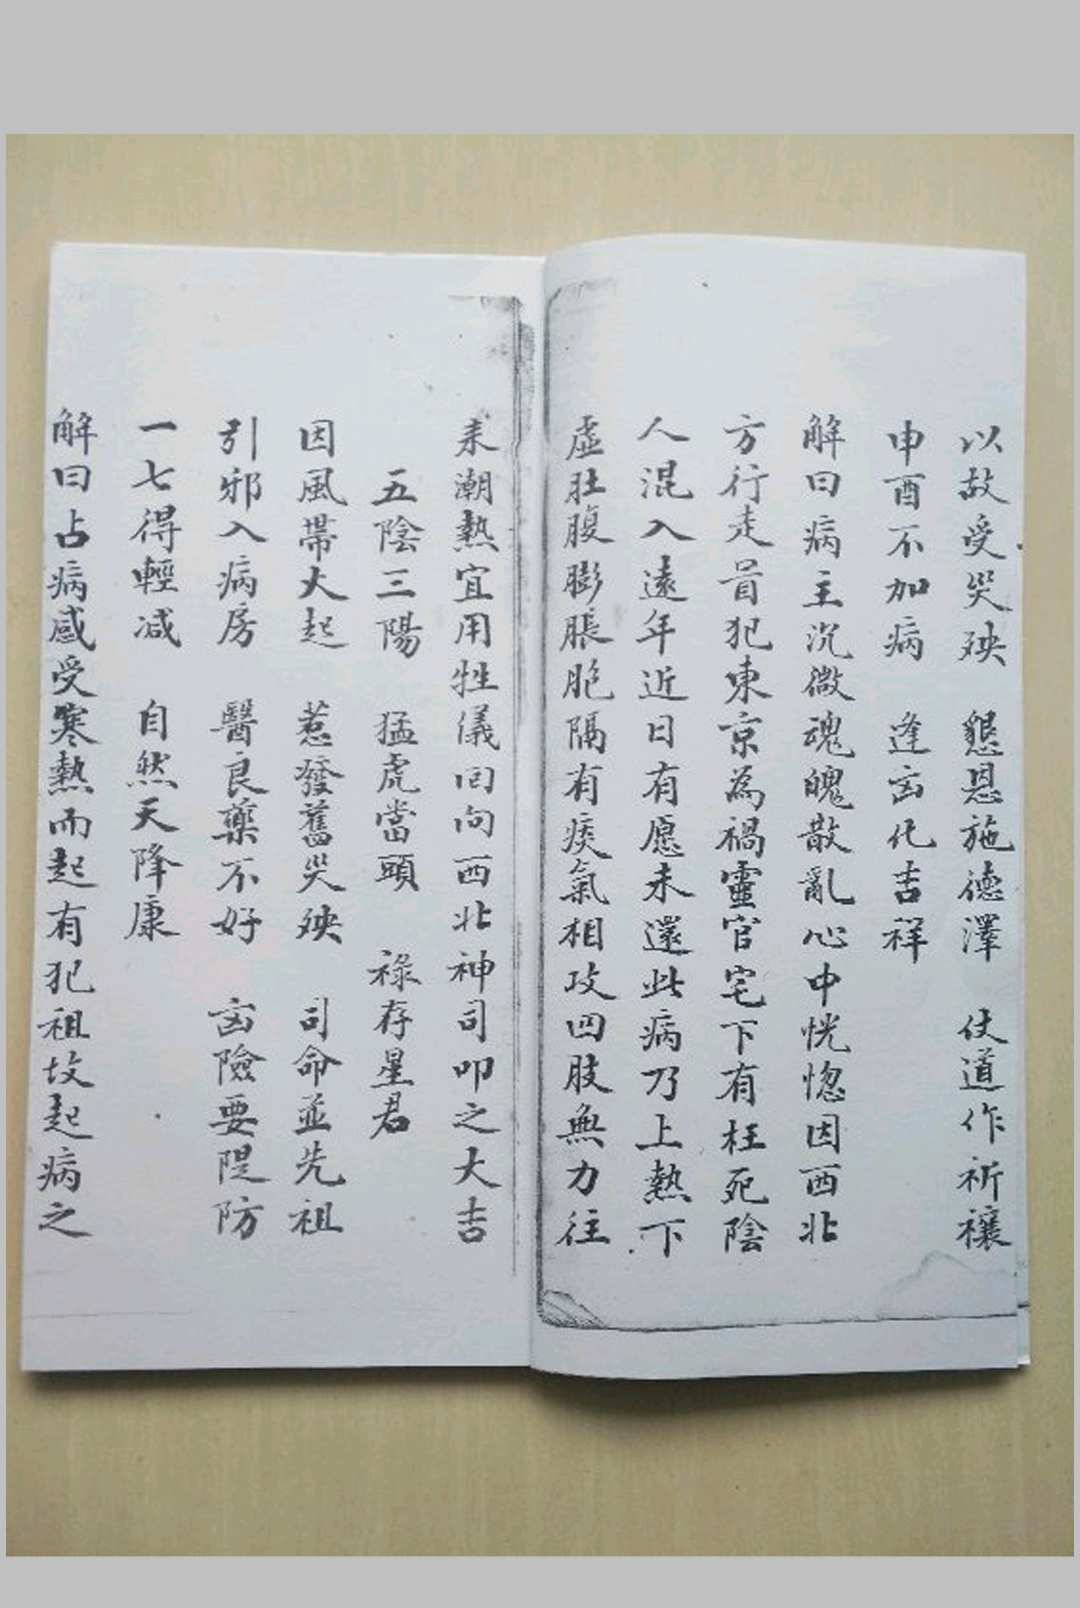 以故受災殃　懇恩施德澤　仗道作祈禳
申酉不加病　逢凶化吉祥
解曰病主沉微魂魄散亂心中恍惚因西北
方行走冒犯東京為禍靈官宅下有枉死陰
人混入遠年近日有愿未還此病乃上熱下
虛肚腹膨脹胞隔有痰氣相攻四肢無力往
来潮熱宜用牲儀回向西北神司叩之大吉
五陰三陽　猛虎當頭　祿存星君
因風帶火起　惹發舊災殃　司命並先祖
引邪入病房　醫良藥不好　凶險要隄防
一七得輕減　自然天降康
解曰占病感受寒熱而起有犯祖坟起病之